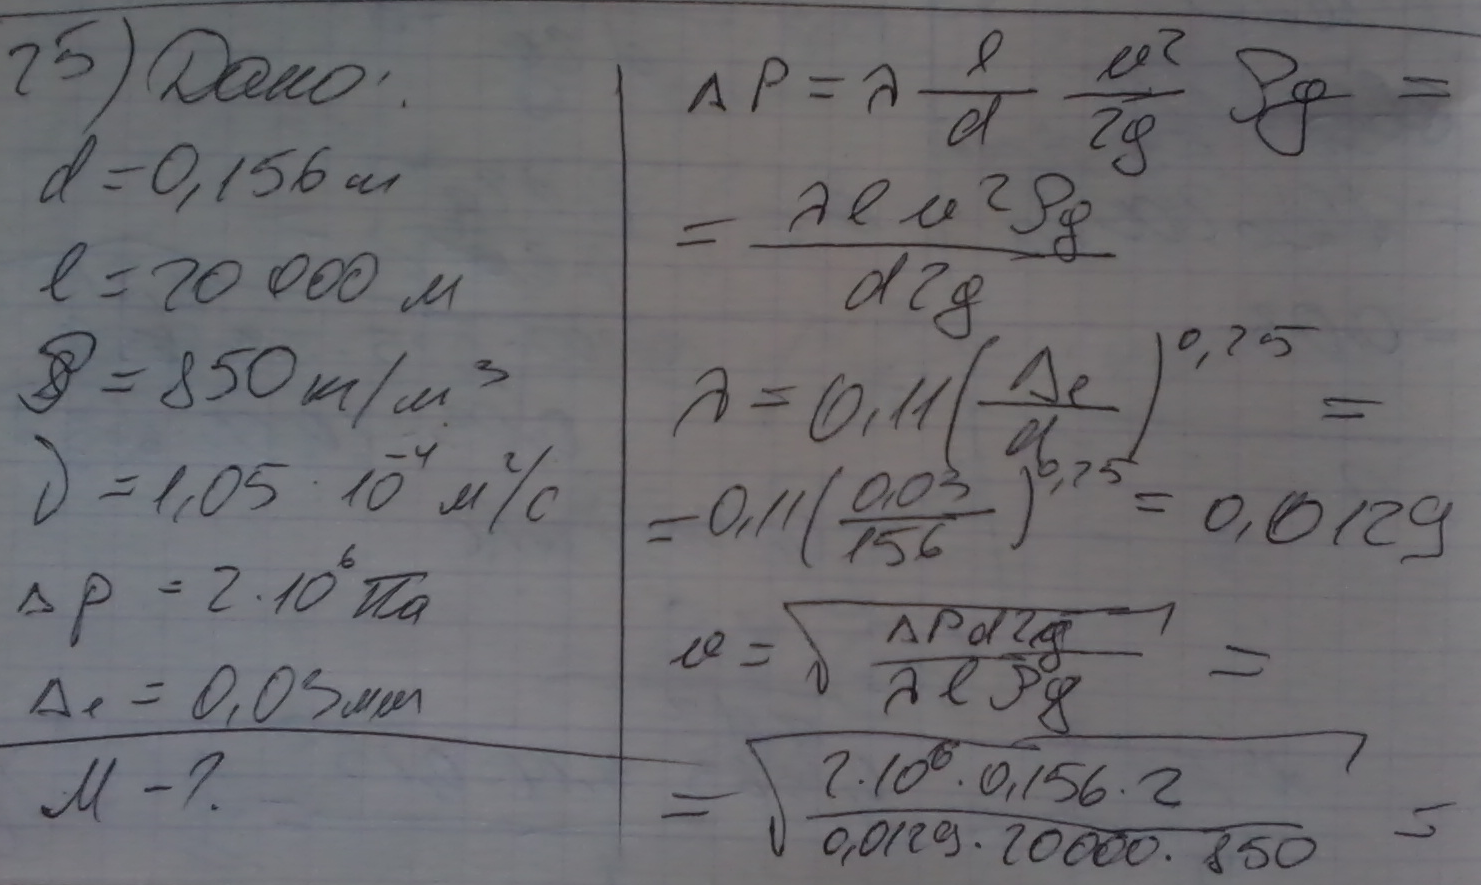 25) Дано:
d = 0,156 м
l = 20 000 м
ρ = 850 т/м³
ν = 1,05 · 10⁻⁴ м²/с
Δp = 2·10⁶ Па
Δₑ = 0,03 мм
M - ?
ΔP = λ l/d υ²/2g ρg =
= λ l υ² ρg / d 2g
λ = 0,11 (Δₑ/d)^0,25 =
= 0,11 (0,03/156)^0,25 = 0,0129
υ = √(ΔP d 2g / λ l ρg) =
= √(2·10⁶·0,156·2 / 0,0129·20000·850) =